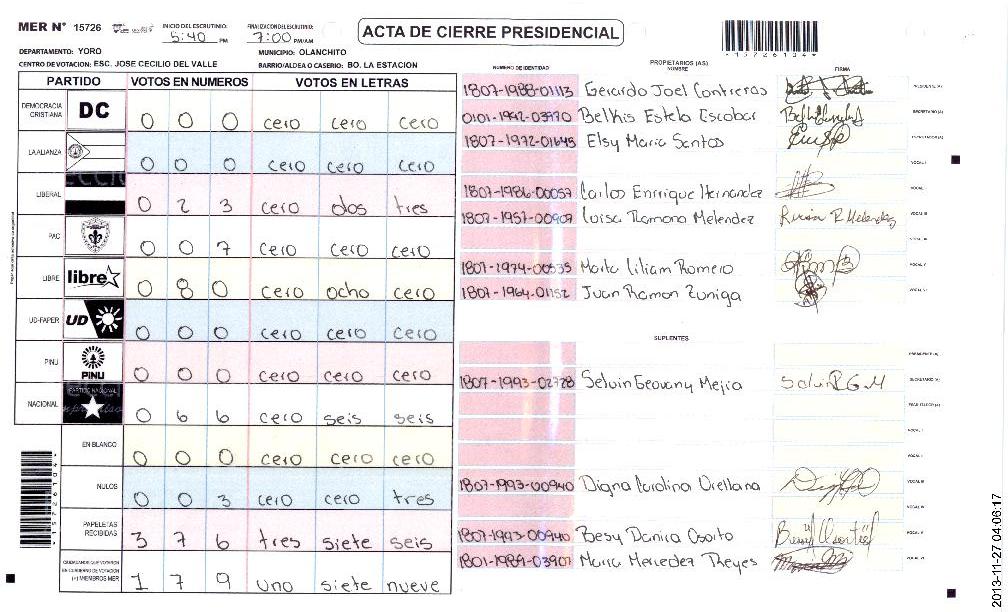 MER N° 15726 INICIO DEL ESCRUTINIO: 5:40 PM FINALIZACION DEL ESCRUTINIO: 7:00 PM/AM
ACTA DE CIERRE PRESIDENCIAL
DEPARTAMENTO: YORO MUNICIPIO: OLANCHITO
CENTRO DE VOTACION: ESC. JOSE CECILIO DEL VALLE BARRIO/ALDEA O CASERIO: BO. LA ESTACION
PARTIDO VOTOS EN NUMEROS VOTOS EN LETRAS
DEMOCRACIA CRISTIANA DC 0 0 0 cero cero cero
LA ALIANZA 0 0 0 cero cero cero
LIBERAL 0 2 3 cero dos tres
PAC 0 0 7 cero cero cero
LIBRE libre 0 8 0 cero ocho cero
UD-FAPER UD 0 0 0 cero cero cero
PINU PINU 0 0 0 cero cero cero
NACIONAL PARTIDO NACIONAL 0 6 6 cero seis seis
EN BLANCO 0 0 0 cero cero cero
NULOS 0 0 3 cero cero tres
PAPELETAS RECIBIDAS 3 7 6 tres siete seis
CIUDADANOS QUE VOTARON EN CUADERNO DE VOTACION (+) MIEMBROS MER 1 7 9 uno siete nueve
PROPIETARIOS (AS)
NUMERO DE IDENTIDAD NOMBRE FIRMA
1807-1988-01113 Gerardo Joel Contreras PRESIDENTE (A)
0101-1992-03970 Belkis Estela Escobar SECRETARIO (A)
1807-1972-01645 Elsy Maria Santos ESCRUTADOR (A)
VOCAL I
1807-1986-00057 Carlos Enrrique Hernandez
1807-1957-00909 Luisa Ramona Melendez VOCAL III
1807-1974-00535 Marta Liliam Romero VOCAL V
1807-1964-01152 Juan Ramon Zuniga
SUPLENTES
PRESIDENTE (A)
1807-1993-02728 Selvin Geovany Mejia Selvin R G M SECRETARIO (A)
ESCRUTADOR (A)
VOCAL I
1807-1993-00940 Digna Carolina Orellana VOCAL III
VOCAL IV
1807-1993-00940 Besy Danira Osorto VOCAL V
1801-1989-03907 Maria Mercedez Reyes
15726104
15726104
2013-11-27 04:06:17